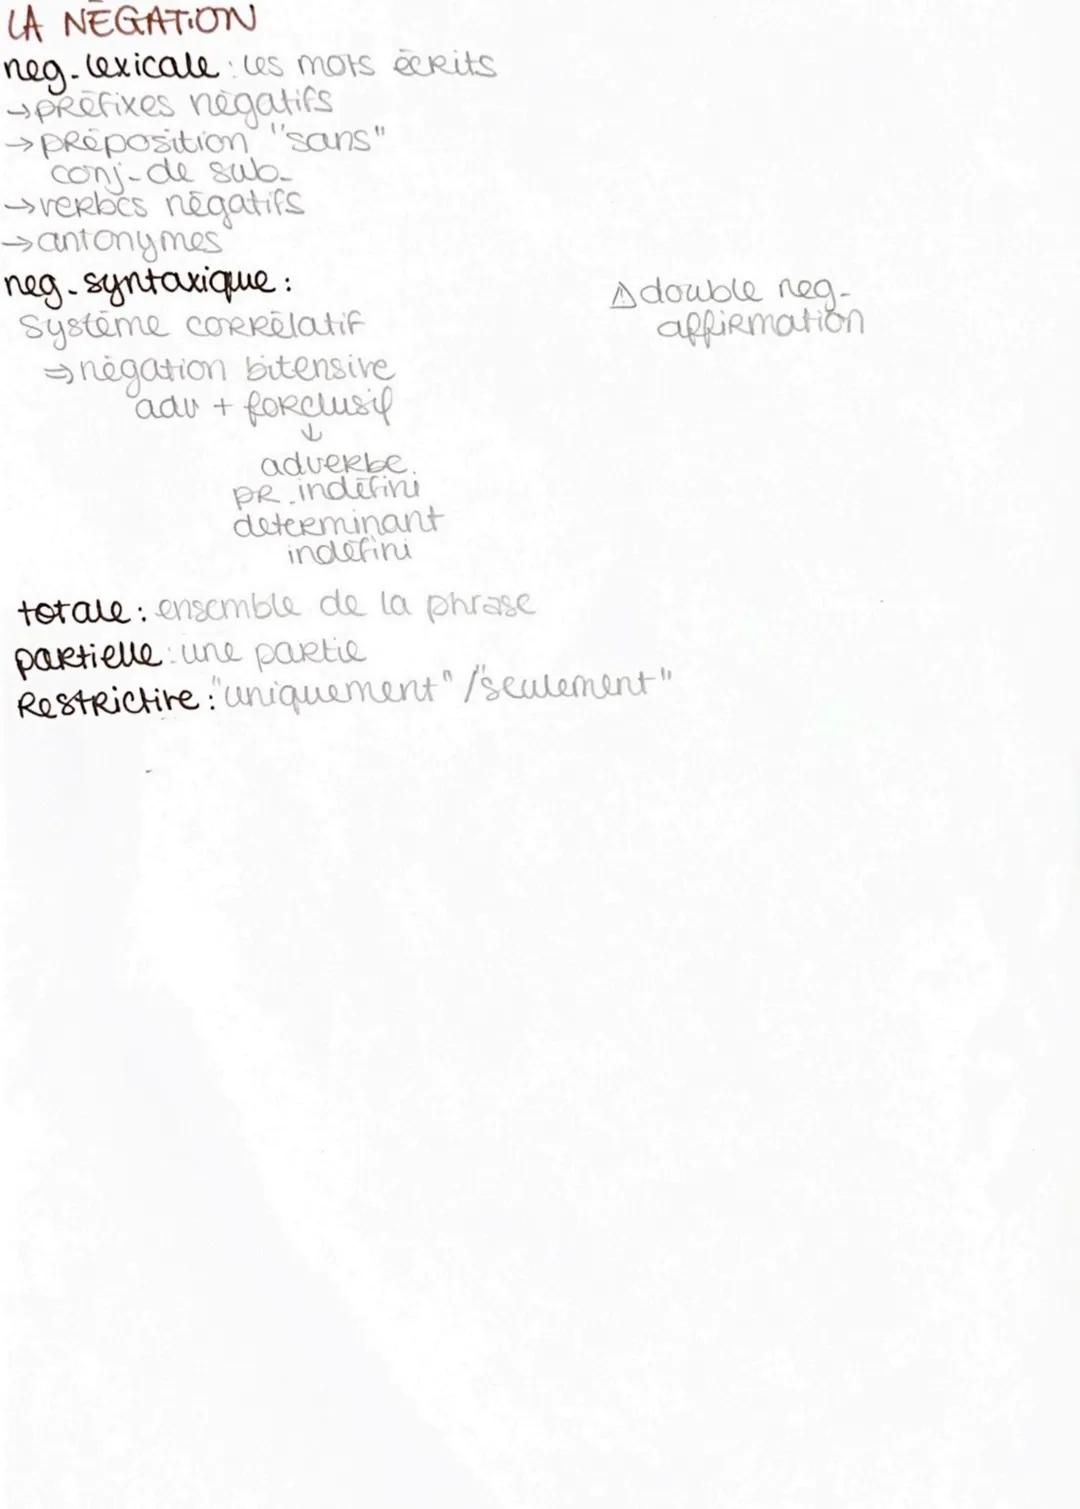 LA NÉGATION
neg. lexicale : les mots écrits
→ préfixes négatifs
→ préposition "sans"
conj. de sub.
→ verbes négatifs
→ antonymes
neg. syntaxique :
Système corrélatif
⇒ négation bitensive
adv + forclusif
↓
adverbe.
pr. indéfini
determinant
indéfini
⚠ double neg.
affirmation
totale : ensemble de la phrase
partielle : une partie
Restrictive : "uniquement" / "seulement"